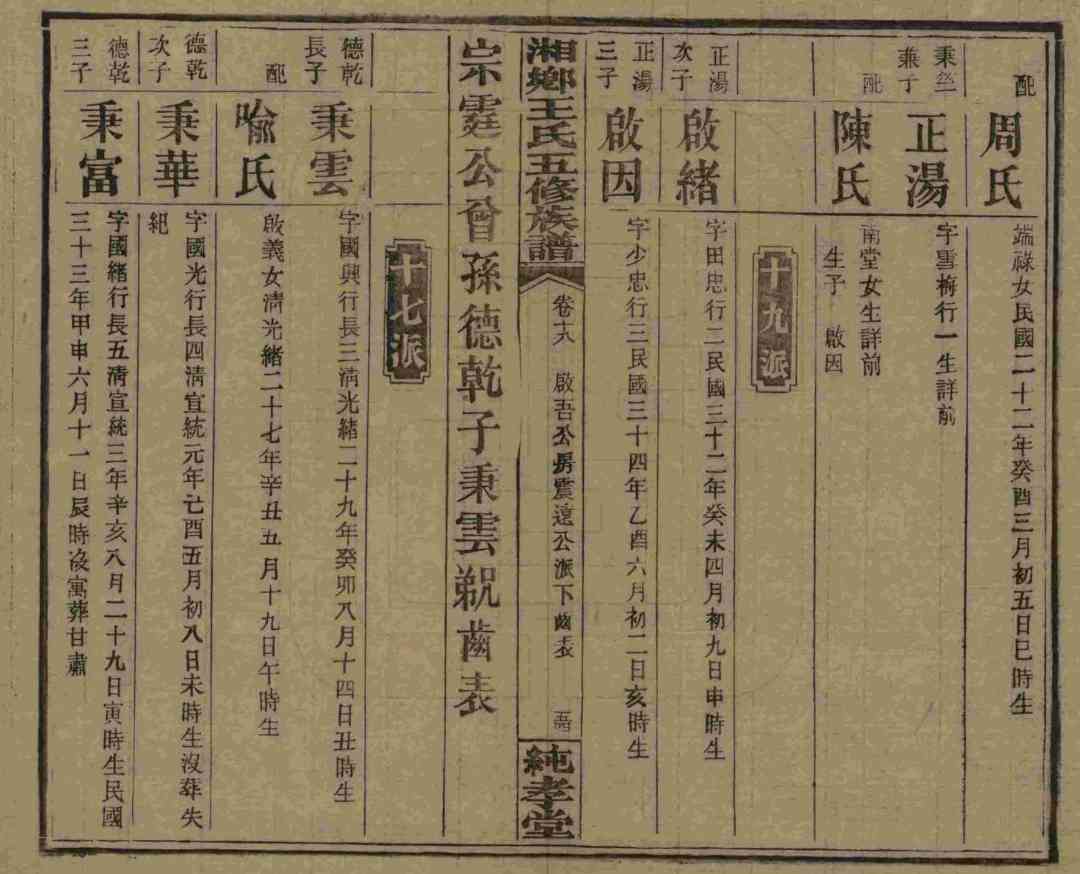 配
周氏
端祿女民國二十二年癸酉三月初五日巳時生
秉坒
兼子
正湯
字雪梅行一生詳前
配
陳氏
南堂女生詳前
生子 啟因
十九派
正湯
次子
啟緒
字田忠行二民國三十二年癸未四月初九日申時生
正湯
三子
啟因
字少忠行三民國三十四年乙酉六月初二日亥時生
湘鄉王氏五修族譜
卷十八 啟吾公房震遠公派下齒表
純孝堂
宗霆公曾孫德乾子秉雲派齒表
十七派
德乾
長子
秉雲
字國興行長三清光緒二十九年癸卯八月十四日丑時生
配
喻氏
啟義女清光緒二十七年辛丑五月十九日午時生
德乾
次子
秉華
字國光行長四清宣統元年己酉五月初八日未時生沒葬失
紀
德乾
三子
秉富
字國緒行長五清宣統三年辛亥八月二十九日寅時生民國
三十三年甲申六月十一日辰時沒寓葬甘肅